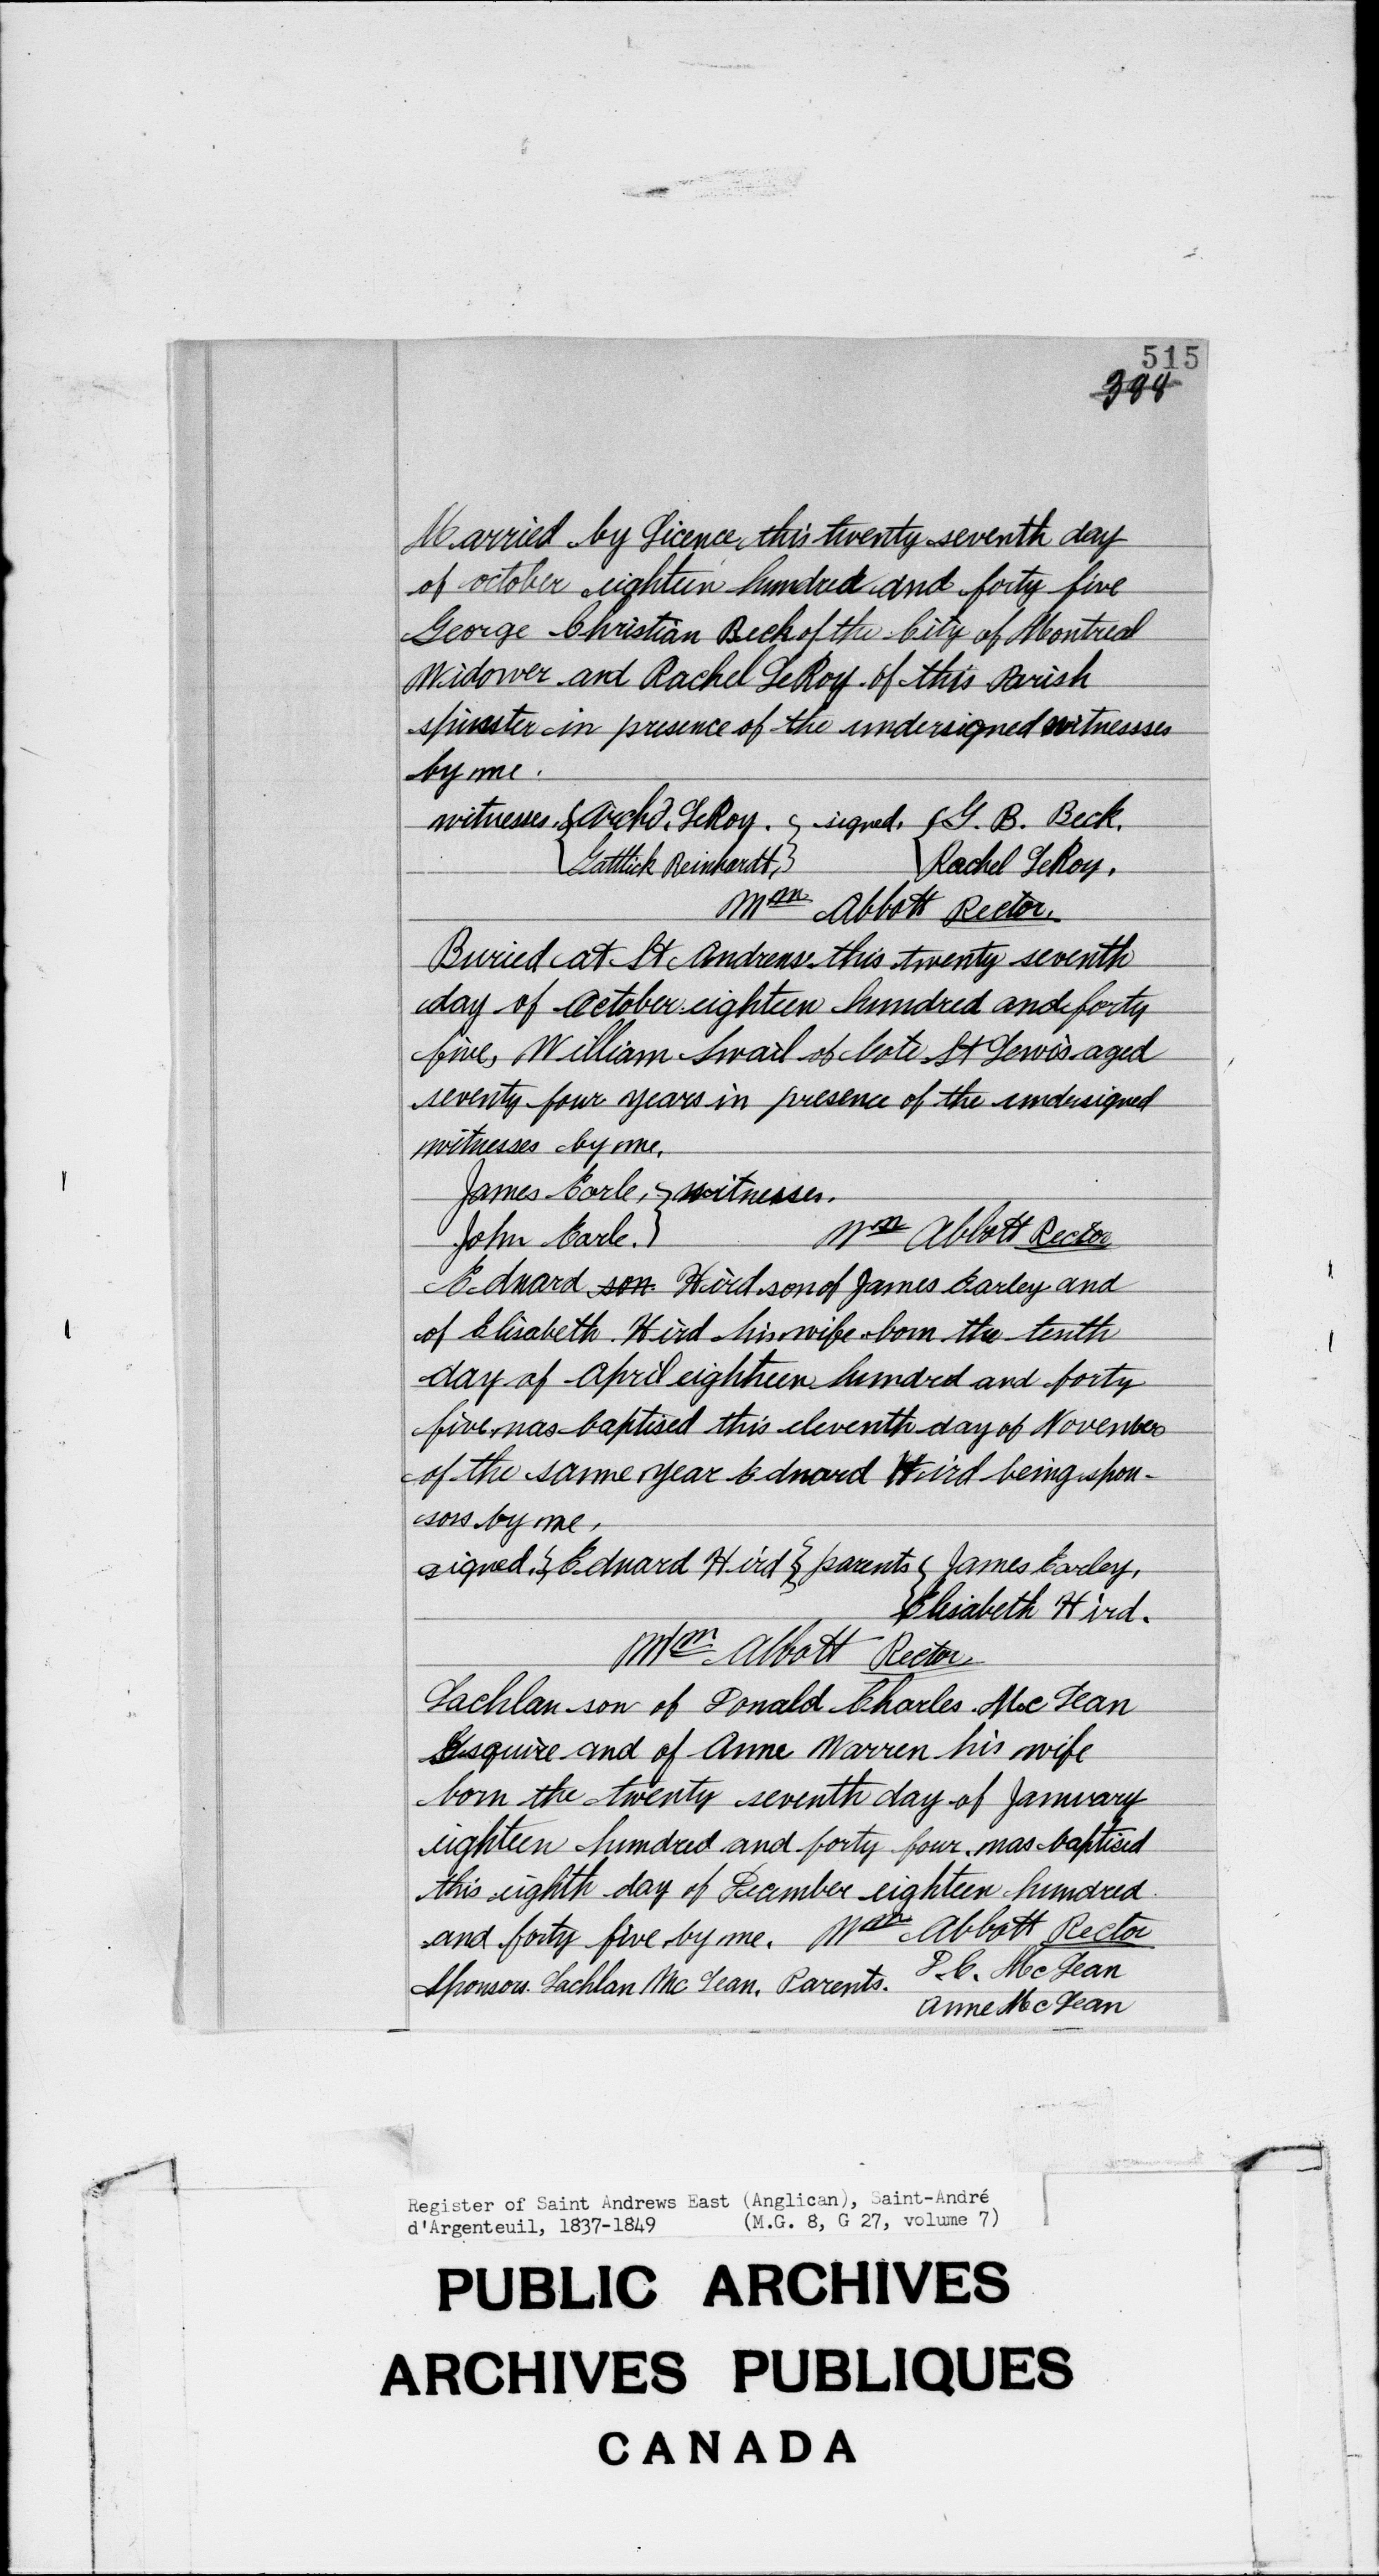 515
388
Married by Licence, this twenty seventh day
of october eighteen hundred and forty five
George Christian Beck of the City of Montreal
Widower and Rachel LeRoy of this Parish
spinster in presence of the undersigned witnessses
by me.
witnesses. { Archd. LeRoy. } signed. { G. B. Beck.
{ Gattlick Reinhardt, } { Rachel LeRoy.
Wm Abbott Rector.
Buried at St Andrews this twenty seventh
day of October eighteen hundred and forty
five, William Swail of Cote St Lewis aged
seventy four years in presence of the undersigned
witnesses by me.
James Earle, } witnesses.
John Earle. } Wm Abbott Rector
Edward son Hird son of James Earley and
of Elisabeth Hird his wife born the tenth
day of April eighteen hundred and forty
five, was baptised this eleventh day of November
of the same year Edward Hird being spon-
sors by me,
signed, } Edward Hird } parents { James Earley,
{ Elisabeth Hird.
Wm Abbott Rector
Lachlan son of Donald Charles McLean
Esquire and of Anne Warren his wife
born the twenty seventh day of January
eighteen hundred and forty four, was baptised
this eighth day of December eighteen hundred
and forty five by me. Wm Abbott Rector
Sponsors. Lachlan McLean. Parents. D. C. McLean
Anne McLean
Register of Saint Andrews East (Anglican), Saint-André
d'Argenteuil, 1837-1849 (M.G. 8, G 27, volume 7)
PUBLIC ARCHIVES
ARCHIVES PUBLIQUES
CANADA